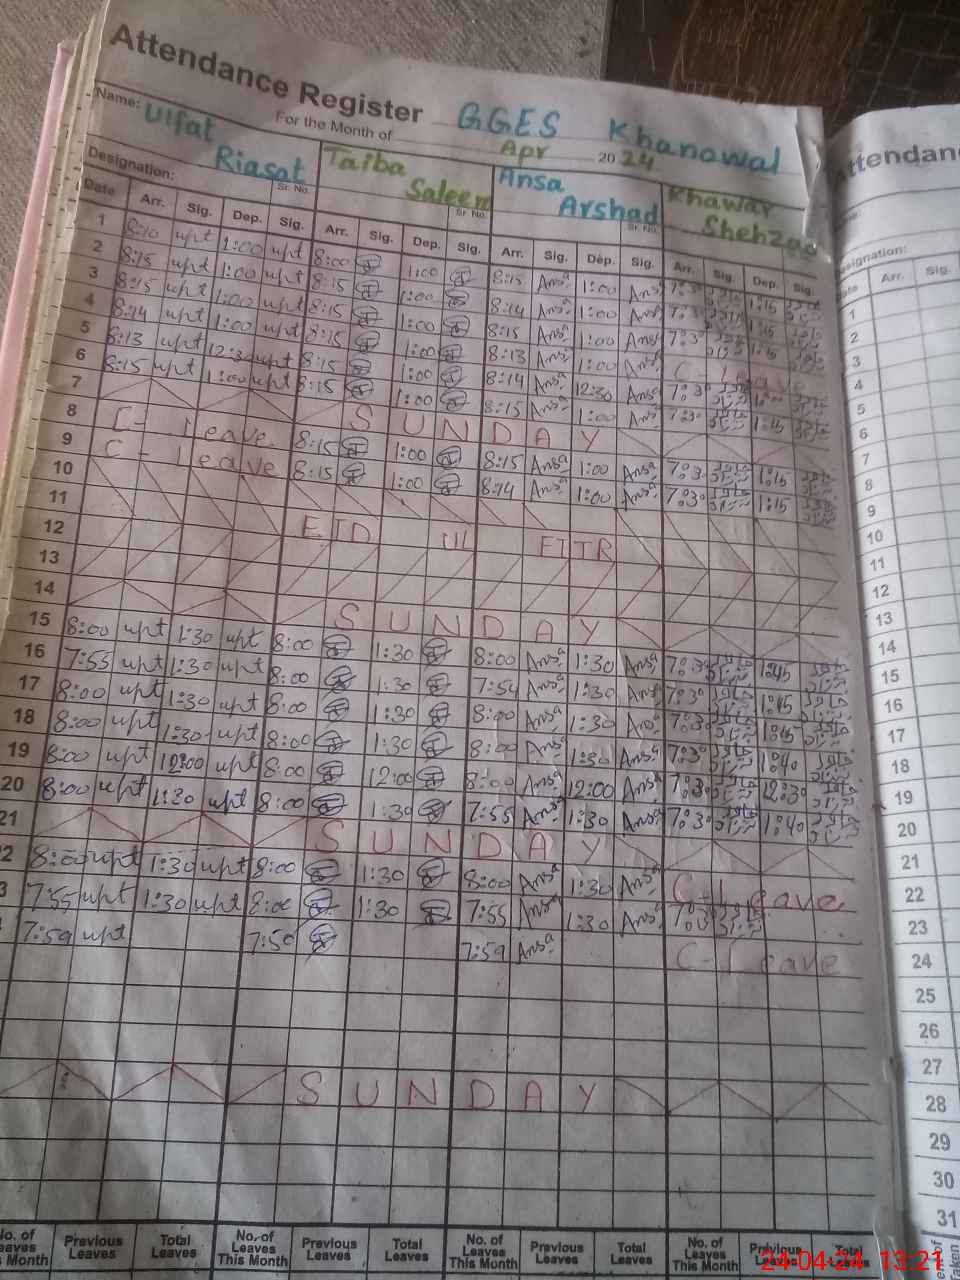 Attendance Register GGES Khanowal
For the Month of Apr 2024
Name: Ulfat Riasat Taiba Saleem Ansa Arshad Khawar Shehzad
Designation: Sr. No. Sr. No. Sr. No.
Date Arr. Sig. Dep. Sig. Arr. Sig. Dep. Sig. Arr. Sig. Dep. Sig. Arr. Sig. Dep. Sig.
1 8:10 upt 1:00 upt 8:00 1:00 8:15 Ansa 1:00 Ansa 7:30 1:15
2 8:15 upt 1:00 upt 8:15 1:00 8:14 Ansa 1:00 Ansa 7:30 1:15
3 8:15 upt 1:00 upt 8:15 1:00 8:15 Ansa 1:00 Ansa 7:30 1:15
4 8:14 upt 1:00 upt 8:15 1:00 8:13 Ansa 1:00 Ansa C-Leave
5 8:13 upt 12:30 upt 8:15 1:00 8:14 Ansa 12:30 Ansa 7:30
6 8:15 upt 1:00 upt 8:15 1:00 8:15 Ansa 1:00 Ansa 7:30 1:15
7 SUNDAY
8 C-Leave 8:15 1:00 8:15 Ansa 1:00 Ansa 7:30 1:15
9 C-Leave 8:15 1:00 8:14 Ansa 1:00 Ansa 7:30 1:15
10
11
12 EID UL FITR
13
14 SUNDAY
15 8:00 upt 1:30 upt 8:00 1:30 8:00 Ansa 1:30 Ansa 7:30 1:45
16 7:55 upt 1:30 upt 8:00 1:30 7:54 Ansa 1:30 Ansa 7:30 1:45
17 8:00 upt 1:30 upt 8:00 1:30 8:00 Ansa 1:30 Ansa 7:30 1:45
18 8:00 upt 1:30 upt 8:00 1:30 8:00 Ansa 1:30 Ansa 7:30 1:40
19 8:00 upt 12:00 upt 8:00 12:00 8:00 Ansa 12:00 Ansa 7:30 12:30
20 8:00 upt 1:30 upt 8:00 1:30 7:55 Ansa 1:30 Ansa 7:30 1:40
21 SUNDAY
22 8:00 upt 1:30 upt 8:00 1:30 8:00 Ansa 1:30 Ansa C-Leave
3 7:55 upt 1:30 upt 8:00 1:30 7:55 Ansa 1:30 Ansa
7:59 upt 7:50 7:59 Ansa C-Leave
SUNDAY
No. of Leaves This Month Previous Leaves Total Leaves No. of Leaves This Month Previous Leaves Total Leaves No. of Leaves This Month Previous Leaves Total Leaves No. of Leaves This Month Previous Leaves Total Leaves
24-04-24 13:21
Attendan
Designation:
Arr. Sig.
1
2
3
4
5
6
7
8
9
10
11
12
13
14
15
16
17
18
19
20
21
22
23
24
25
26
27
28
29
30
31